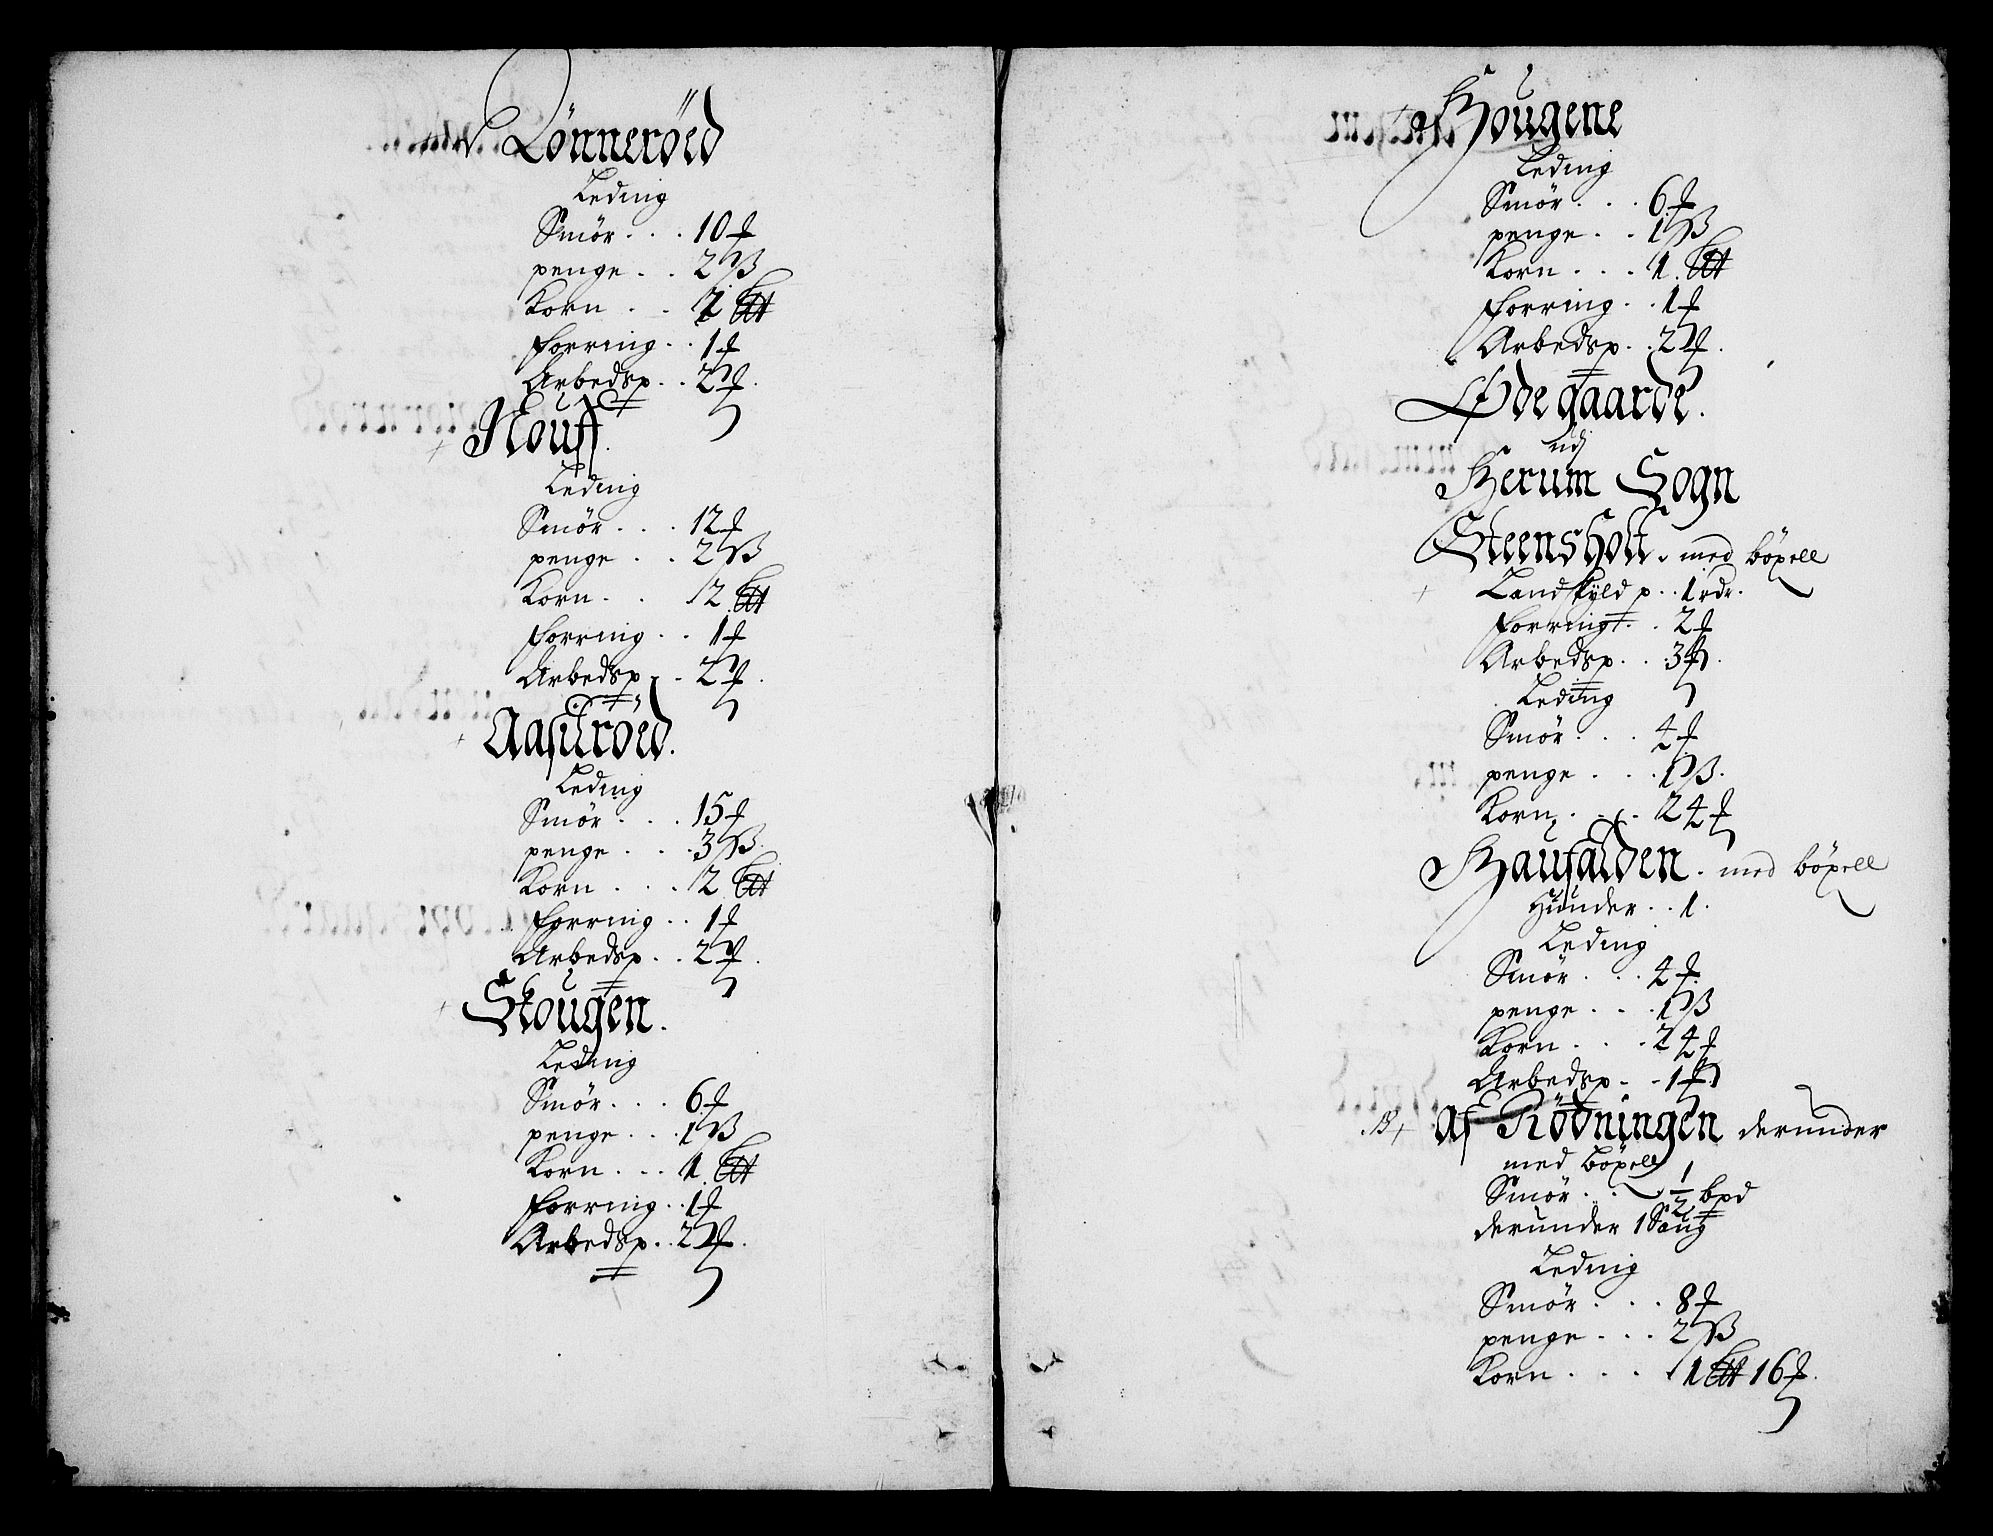 Lönneröed
Leding
Smör . . . 10 ₰
penge . . 2 ß
Korn . . 2 L℔
forring . . 1 ₰
Arbedsp . . 2 ₰.
Nouff.
Leding
Smör . . . 12 ₰
penge . . 2 ß
Korn . . 2 L℔
forring . . 1 ₰
Arbedsp . . 2 ₰.
Aasiiröed.
Leding
Smör . . . 15 ₰
penge . . . 3 ß.
Korn . . . 2 L℔
forring . . 1 ₰
Arbedsp . . 2 ₰.
Skougen.
Leding
Smör . . . 6 ₰
penge . . . 1 ß
Korn . . . 1 L℔
forring . . 1 ₰
Arbedsp . . 2 ₰.
af Hougene
Leding
Smör . . . 6 ₰
penge . . 1 ß
Korn . . . 1 L℔
forring . . 1 ₰
Arbedsp . . 2 ₰.
Øde gaarde.
udj
Herum Sogn
Steensholt. med böxell
Landskyld p . . 1 rdr.
forring . . 2 ₰
Arbedsp . . 3 ₰.
Leding
Smör . . . 4 ₰
penge . . . 1 ß.
Korn . . . 24 ₰
Haufalden. med böxell
Hunder . . 1.
Leding
Smör . . . 4 ₰.
penge . . . 1 ß
Korn . . . 24 ₰
Arbedsp . . 1 ₰
af Rödningen derunder
med böxell
Smör . . ½ bpd
derunder 1 Saug
Leding
Smör . . . 8 ₰
penge . . . 2 ß
Korn . . . . 1 L℔ 16 ₰.